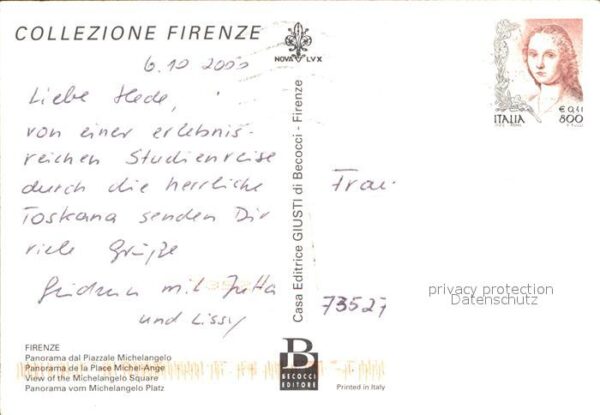 COLLEZIONE FIRENZE
NOVA LVX
6.10 2000
Liebe Hede,
von einer erlebnis-
reichen Studienreise
durch die herrliche
Toskana senden Dir
viele Grüße
Gudrun mit Jutta
und Lissy
Casa Editrice GIUSTI di Becocci - Firenze
€ 0,41
ITALIA 800
Frau
73527
privacy protection
Datenschutz
FIRENZE
Panorama dal Piazzale Michelangelo
Panorama de la Place Michel-Ange
View of the Michelangelo Square
Panorama vom Michelangelo Platz
B
BECOCCI
EDITORE
Printed in Italy